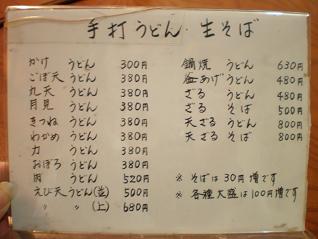 手打うどん・生そば
かけ うどん 300円
ごぼ天 うどん 380円
丸天 うどん 380円
月見 うどん 380円
きつね うどん 380円
わかめ うどん 380円
力 うどん 380円
おぼろ うどん 380円
肉 うどん 520円
えび天うどん(並) 500円
〃 〃 (上) 680円
鍋焼 うどん 630円
釜あげ うどん 480円
ざる うどん 480円
ざる そば 500円
天ざる うどん 800円
天ざる そば 800円
※ そばは30円増です
※ 各種大盛は100円増です